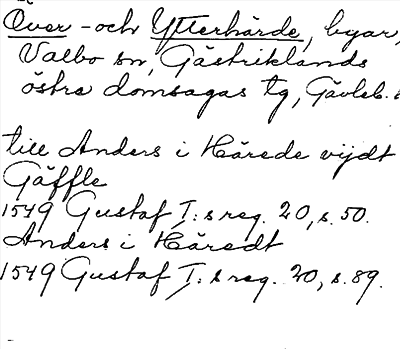 Över- och Ytterhärde, byar,
Valbo sn, Gästriklands
östra domsagas tg, Gävleb.
till Anders i Härede vijdt
Gäffle
1549 Gustaf I:s reg. 20, s. 50.
Anders i Häredt
1549 Gustaf I:s reg. 20, s. 89.